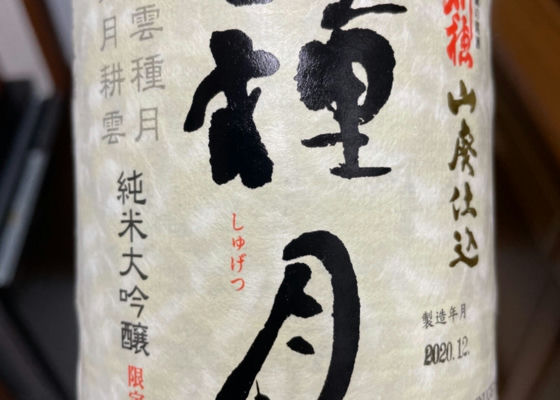 刈穂
山廃仕込
製造年月
2020.12.
種月
しゅげつ
雲種月
月耕雲
純米大吟醸
限定